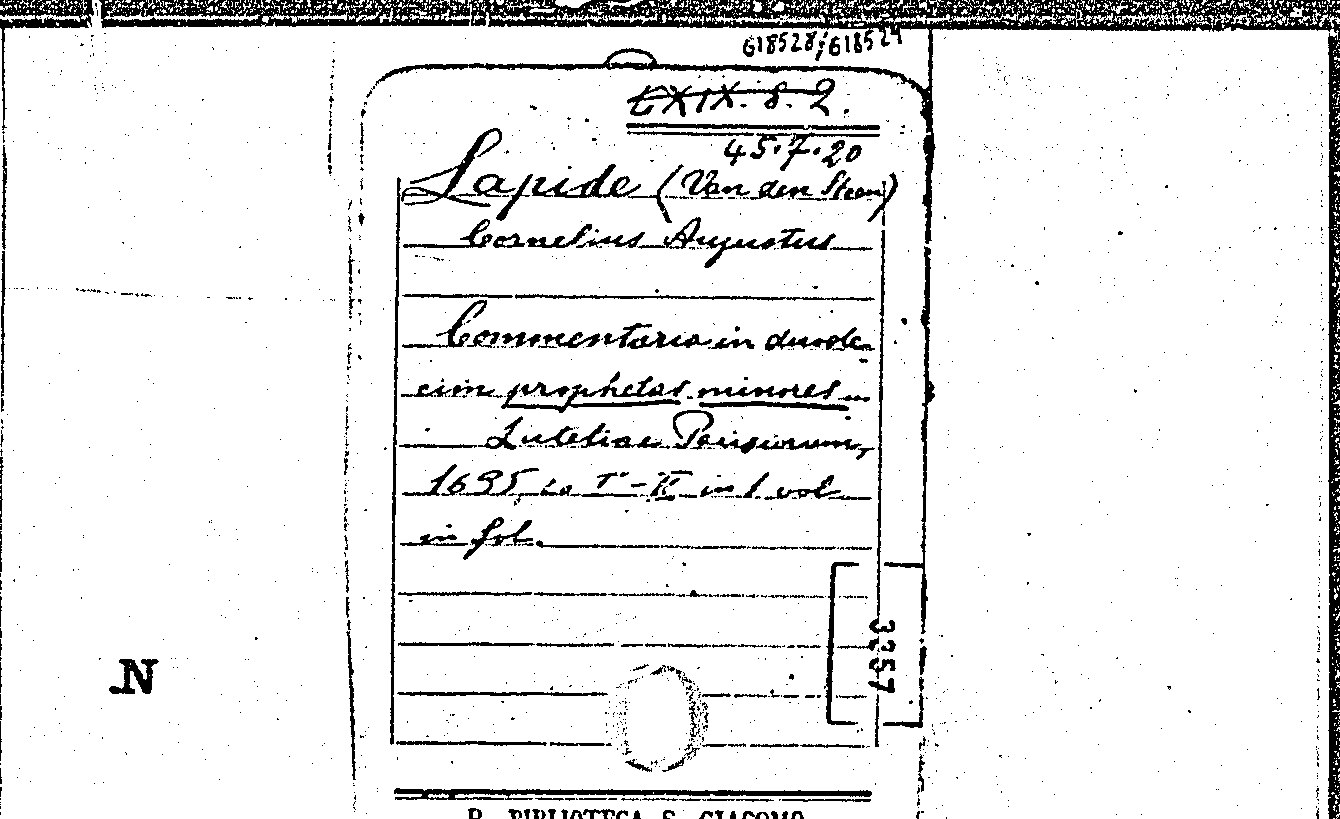 618528; 618529
LXIX. 8. 2.
45.7.20
Lapide (Van den Steen)
Cornelius Augustus
Commentaria in duode-
cim prophetas minores ...
Luteliae Parisiorum,
1695, Ti - II in 1 vol
in fol.
3257
.N
R. BIBLIOTECA S. GIACOMO